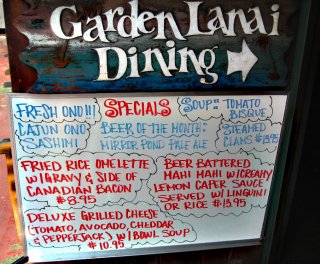 Garden Lanai
Dining
FRESH ONO!!!
CAJUN ONO
SASHIMI
SPECIALS
BEER OF THE MONTH:
MIRROR POND PALE ALE
SOUP: TOMATO
BISQUE
STEAMED
CLAMS
FRIED RICE OMELETTE
W/ GRAVY & SIDE OF
CANADIAN BACON
$8.95
BEER BATTERED
MAHI MAHI W/ CREAMY
LEMON CAPER SAUCE
SERVED W/ LINGUINI
OR RICE $13.95
DELUXE GRILLED CHEESE
(TOMATO, AVOCADO, CHEDDAR
& PEPPERJACK) W/ BOWL SOUP
$10.95